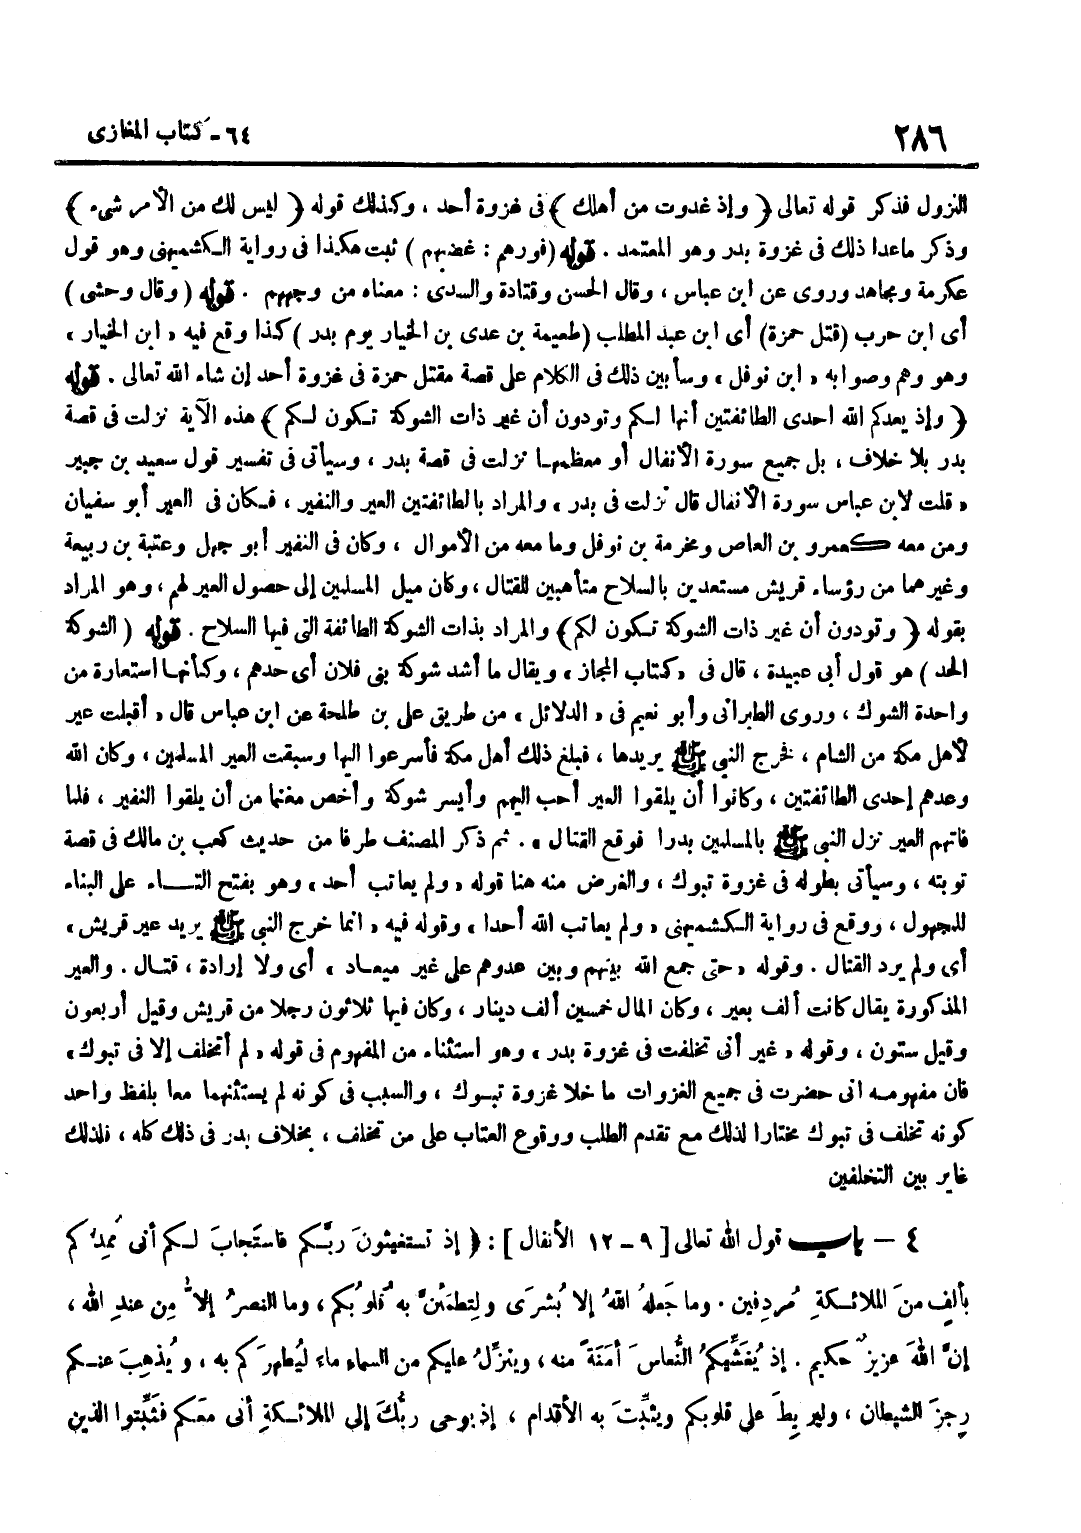 ٢٨٦
٦٤ - كتاب المغازى
النزول فذكر قوله تعالى ﴿ وإذ غدوت من أهلك ﴾ فى غزوة أحد ، وكذلك قوله ﴿ ليس لك من الأمر شىء ﴾
وذكر ماعدا ذلك فى غزوة بدر وهو المعتمد . قوله ( فورهم : غضبهم ) ثبت هكذا فى رواية الكشميهنى وهو قول
عكرمة ومجاهد وروى عن ابن عباس ، وقال الحسن وقتادة والسدى : معناه من وجههم . قوله ( وقال وحشى )
أى ابن حرب ( قتل حمزة ) أى ابن عبد المطلب ( طعيمة بن عدى بن الخيار يوم بدر ) كذا وقع فيه « ابن الخيار »
وهو وهم وصوابه « ابن نوفل » وسأبين ذلك فى الكلام على قصة مقتل حمزة فى غزوة أحد إن شاء الله تعالى . قوله
﴿ وإذ يعدكم الله احدى الطائفتين أنها لكم وتودون أن غير ذات الشوكة تكون لكم ﴾ هذه الآية نزلت فى قصة
بدر بلا خلاف ، بل جميع سورة الأنفال أو معظمها نزلت فى قصة بدر ، وسيأتى فى تفسير قول سعيد بن جبير
« قلت لابن عباس سورة الأنفال قال نزلت فى بدر » والمراد بالطائفتين العير والنفير ، فكان فى العير أبو سفيان
ومن معه كعمرو بن العاص ومخرمة بن نوفل وما معه من الأموال ، وكان فى النفير أبو جهل وعتبة بن ربيعة
وغيرهما من رؤساء قريش مستعدين بالسلاح متأهبين للقتال ، وكان ميل المسلمين إلى حصول العير لهم ، وهو المراد
بقوله ﴿ وتودون أن غير ذات الشوكة تكون لكم ﴾ والمراد بذات الشوكة الطائفة التى فيها السلاح . قوله ( الشوكة
الحد ) هو قول أبى عبيدة ، قال فى « كتاب المجاز » ويقال ما أشد شوكة بنى فلان أى حدهم ، وكأنها استعارة من
واحدة الشوك ، وروى الطبرانى وأبو نعيم فى « الدلائل » من طريق على بن طلحة عن ابن عباس قال « أقبلت عير
لأهل مكة من الشام ، فخرج النبى ﷺ يريدها ، فبلغ ذلك أهل مكة فأسرعوا اليها وسبقت العير المسلمين ، وكان الله
وعدهم إحدى الطائفتين ، وكانوا أن يلقوا العير أحب اليهم وأيسر شوكة وأخص مغنما من أن يلقوا النفير ، فلما
فاتهم العير نزل النبى ﷺ بالمسلمين بدرا فوقع القتال » . ثم ذكر المصنف طرفا من حديث كعب بن مالك فى قصة
توبته ، وسيأتى بطوله فى غزوة تبوك ، والغرض منه هنا قوله « ولم يعاتب أحد » وهو بفتح التاء على البناء
للمجهول ، ووقع فى رواية الكشميهنى « ولم يعاتب الله أحدا » وقوله فيه « انما خرج النبى ﷺ يريد عير قريش »
أى ولم يرد القتال . وقوله « حتى جمع الله بينهم وبين عدوهم على غير ميعاد » أى ولا إرادة ، قتال . والعير
المذكورة يقال كانت ألف بعير ، وكان المال خمسين ألف دينار ، وكان فيها ثلاثون رجلا من قريش وقيل أربعون
وقيل ستون ، وقوله « غير أنى تخلفت فى غزوة بدر » وهو استثناء من المفهوم فى قوله « لم أتخلف إلا فى تبوك »
فان مفهومه انى حضرت فى جميع الغزوات ما خلا غزوة تبوك ، والسبب فى كونه لم يستثنهما معا بلفظ واحد
كونه تخلف فى تبوك مختارا لذلك مع تقدم الطلب ووقوع العتاب على من تخلف ، بخلاف بدر فى ذلك كله ، فلذلك
غاير بين التخلفين
٤ - باب قول الله تعالى [ ٩ - ١٢ الأنفال ] : ﴿ إذ تستغيثونَ ربَّكم فاستجابَ لكم أنى مُمِدُّكم
بألفٍ منَ الملائكةِ مُردِفين . وما جَعلهُ اللهُ إلا بُشرَى ولِتطمَئنَّ به قُلوبُكم ، وما النصرُ إلا مِن عندِ الله ،
إنَّ اللهَ عزيزٌ حكيم . إذ يُغَشِّيكمُ النُّعاسَ أمَنَةً منه ، وينزِّلُ عليكم من السماءِ ماءً ليُطهرَكم به ، ويُذهِبَ عنكم
رِجزَ الشيطان ، وليربِطَ على قلوبكم ويثبِّتَ به الأقدام ، إذ يوحى ربُّكَ إلى الملائكةِ أنى معَكم فثبِّتوا الذين